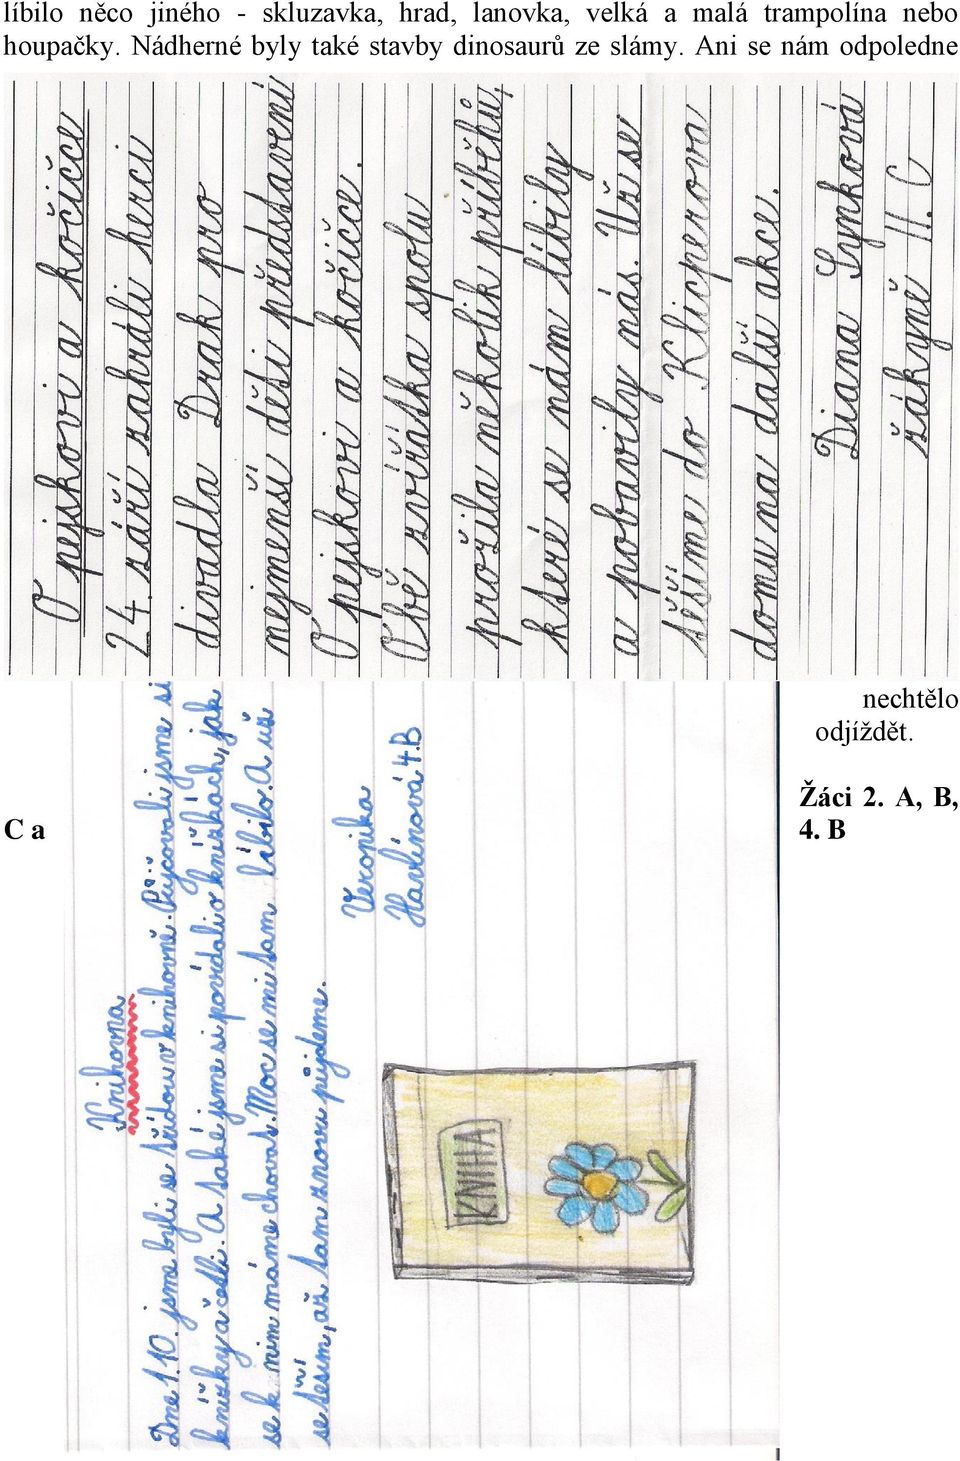 líbilo něco jiného - skluzavka, hrad, lanovka, velká a malá trampolína nebo
houpačky. Nádherné byly také stavby dinosaurů ze slámy. Ani se nám odpoledne
O pejskovi a kočičce
24. září zahráli herci
divadla Drak pro
nejmenší děti představení
O pejskovi a kočičce.
Obě zvířátka spolu
prožila několik příběhů,
které se nám líbily
a pobavily nás. Už se
těšíme do Klicperova
domu na další akce.
Diana Synková
žákyně II. C
nechtělo
odjíždět.
Žáci 2. A, B,
C a 4. B
Knihovna
Dne 1.10. jsme byli se třídou v knihovně. Půjčovali jsme si
knížky a četli. A také jsme si povídali o knížkách, jak
se k nim máme chovat. Moc se mi tam líbilo. A už
se těším, až tam znovu půjdeme.
Veronika
Havlínová 4.B
KNIHA